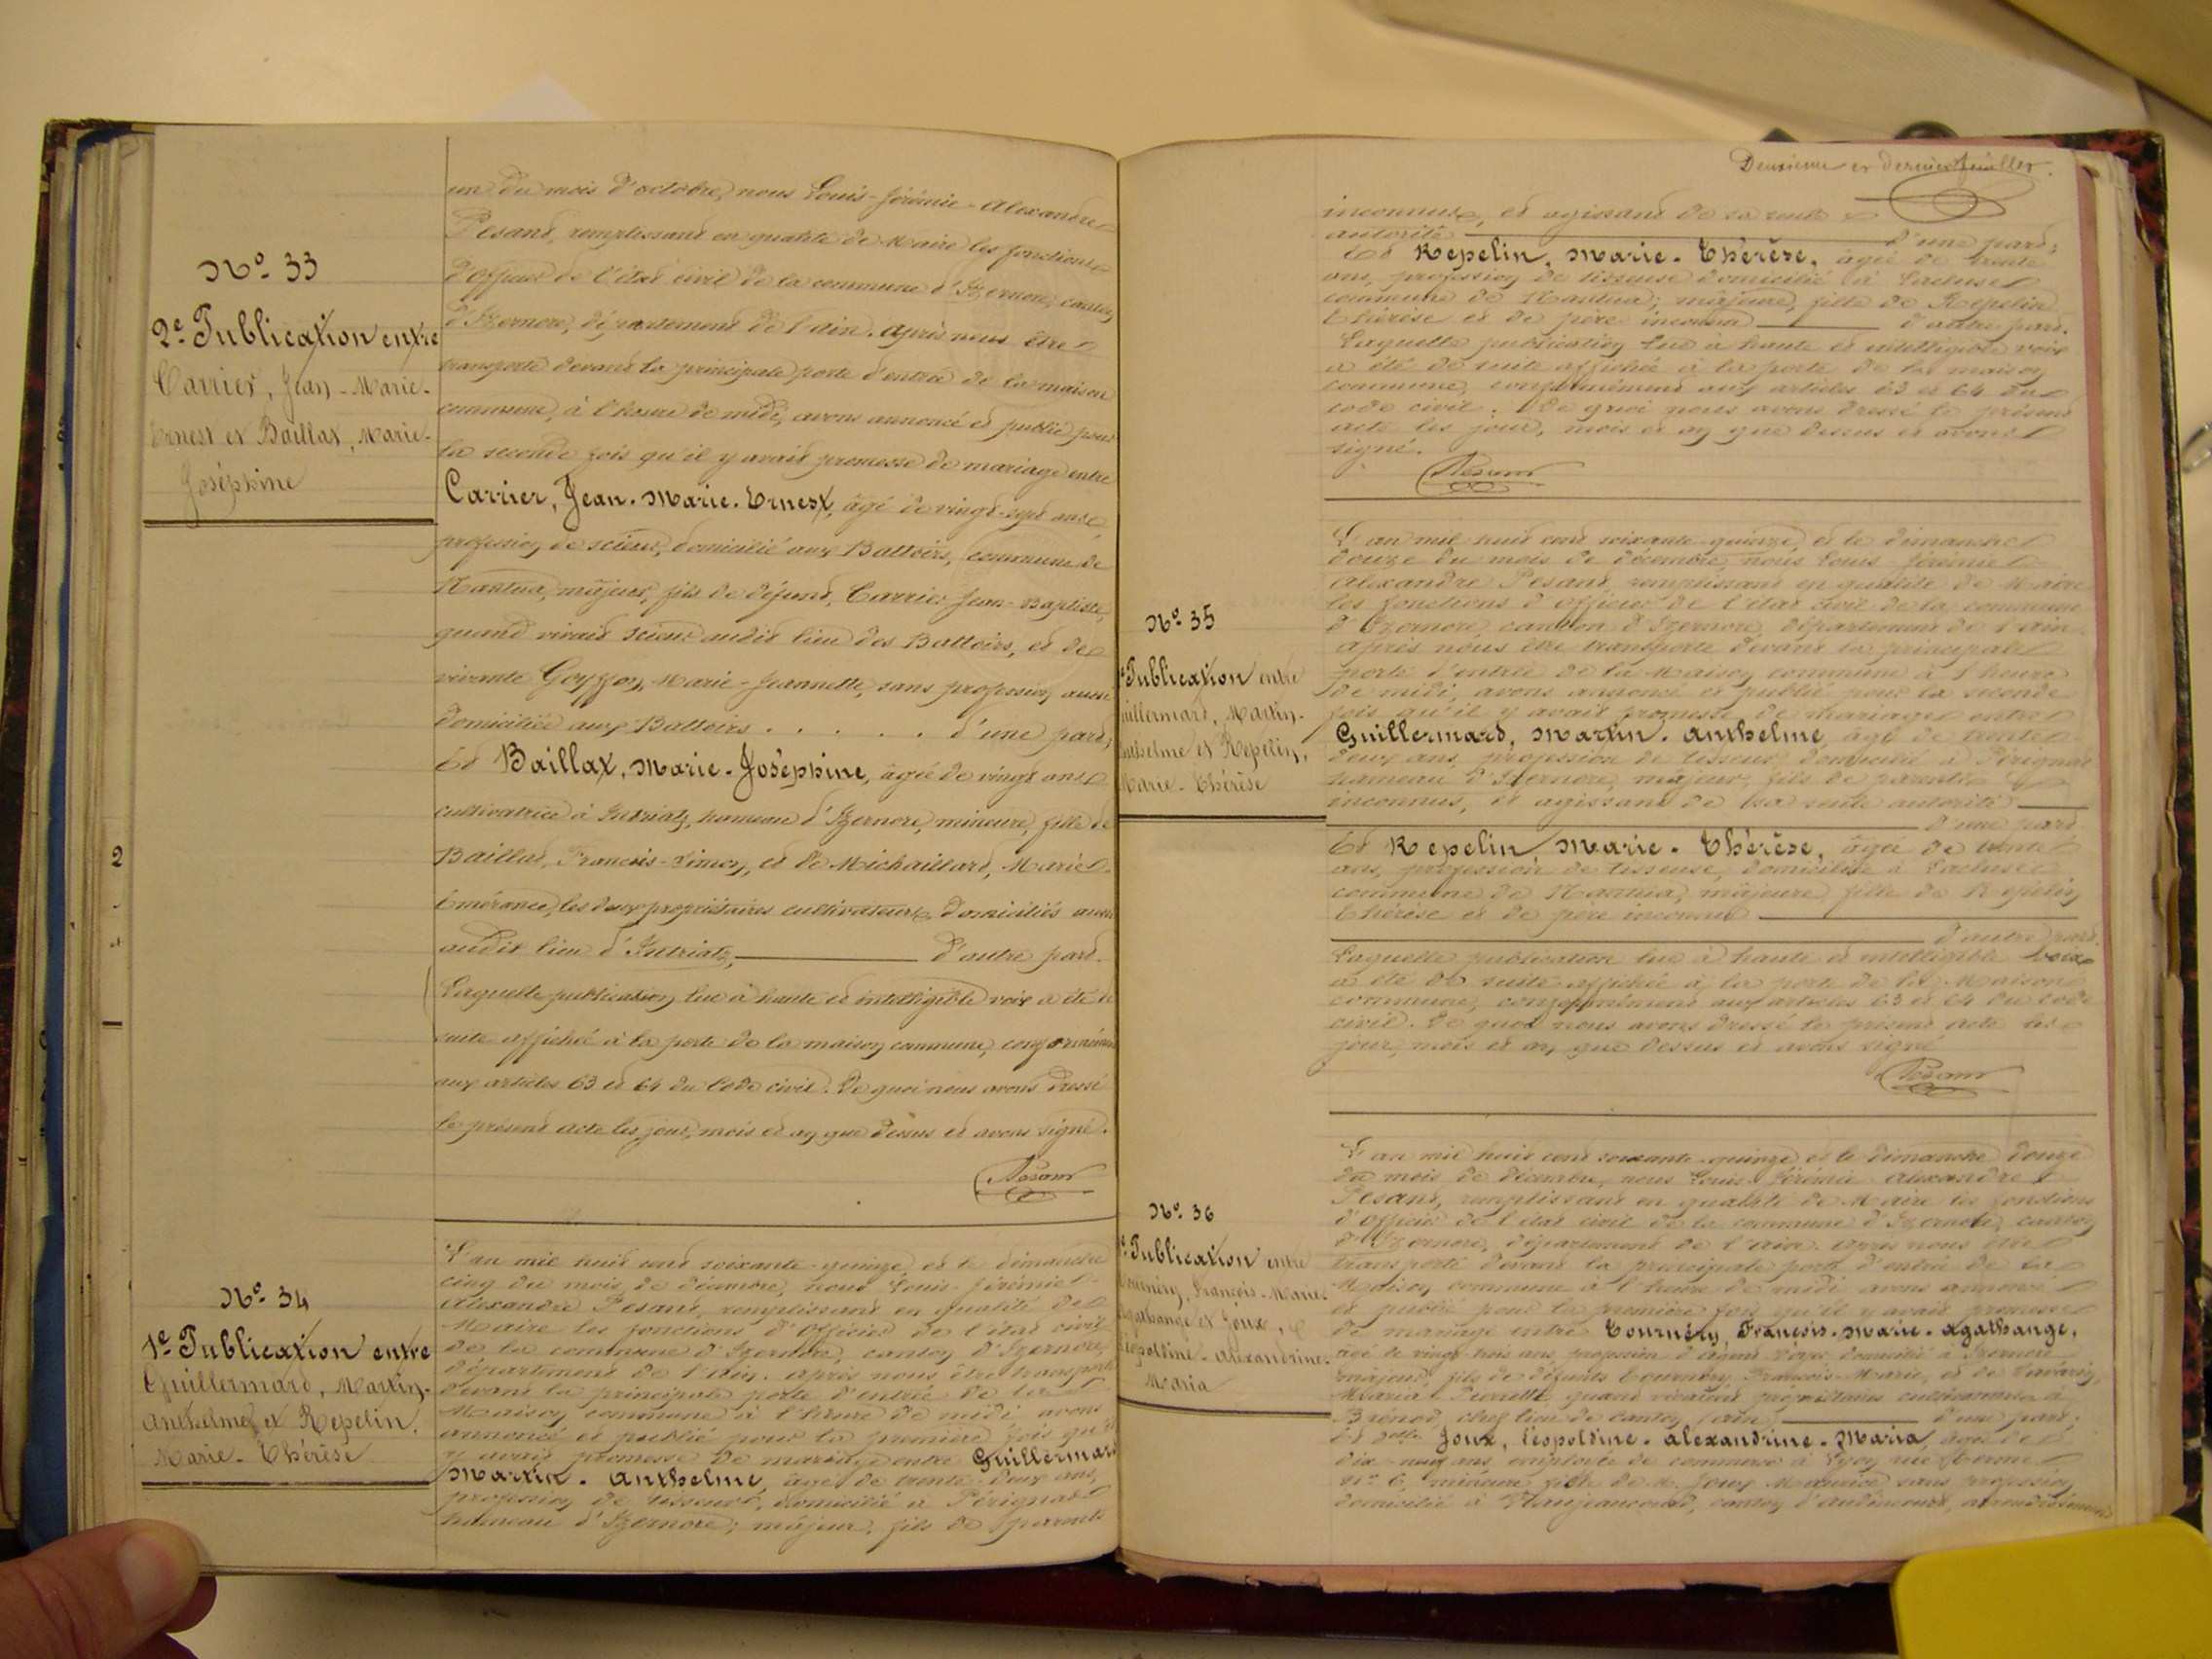 No. 33
2e Publication entre
Carrier, Jean-Marie-
Ernest et Baillat, Marie-
Joséphine
un du mois d'octobre, nous Louis-Jérémie-Alexandre
Pesant, remplissant en qualité de Maire les fonctions
d'officier de l'état civil de la commune d'Izernore, canton
d'Izernore, département de l'ain. Après nous être
transporté devant la principale porte d'entrée de la maison
commune, à l'heure de midi, avons annoncé et publié pour
la seconde fois qu'il y avait promesse de mariage entre
Carrier, Jean-Marie-Ernest, âgé de vingt-sept ans,
profession de scieur, domicilié aux Battoirs, commune de
Nantua, majeur, fils de défunt, Carrier Jean-Baptiste,
quand vivait scieur audit lieu des Battoirs, et de
vivante Goyffon, Marie-Jeannette, sans profession, aussi
domiciliée aux Battoirs . . . . . . d'une part,
Et Baillat, Marie-Joséphine, âgée de vingt ans
cultivatrice à Intriatz, hameau d'Izernore, mineure, fille de
Baillat, François-Simon, et de Michaillard, Marie
Emérance, les deux propriétaires cultivateurs, domiciliés aussi
audit lieu d'Intriatz, d'autre part.
Laquelle publication lue à haute et intelligible voix a été de
suite affichée à la porte de la maison commune, conformément
aux articles 63 et 64 du Code civil. De quoi nous avons dressé
le présent acte les jour, mois et an que dessus et avons signé.
Pesant
No. 34
1e Publication entre
Guillermard, Martin-
Anthelme et Repelin,
Marie-Thérèse
L'an mil huit cent soixante-quinze et le dimanche
cinq du mois de décembre, nous Louis-Jérémie
Alexandre Pesant, remplissant en qualité de
Maire les fonctions d'Officier de l'état civil
de la commune d'Izernore, canton d'Izernore,
département de l'Ain. Après nous être transporté
devant la principale porte d'entrée de la
Maison commune à l'heure de midi, avons
annoncé et publié pour la première fois qu'il
y avait promesse de mariage entre Guillermard
Martin-Anthelme, âgé de trente-deux ans,
profession de tisseur, domicilié à Pérignat
hameau d'Izernore; majeur, fils de parents
2
Deuxième et dernier feuillet.
inconnus, et agissant de sa seule
autorité d'une part;
Et Repelin, Marie-Thérèse, âgée de trente
ans, profession de tisseuse domicilié à Lecluse
commune de Nantua; majeure, fille de Repelin
Thérèse et de père inconnu d'autre part.
Laquelle publication lue à haute et intelligible voix
a été de suite affichée à la porte de la maison
commune, conformément aux articles 63 et 64 du
code civil. De quoi nous avons dressé le présent
acte les jour, mois et an que dessus et avons
signé.
Pesant
No. 35
Publication entre
uillermard, Martin-
nthelme et Repelin,
Marie-Thérèse
L'an mil huit cent soixante-quinze, et le dimanche
douze du mois de décembre, nous Louis Jérémie
Alexandre Pesant, remplissant en qualité de Maire
les fonctions d'officier de l'état civil de la commune
d'Izernore, canton d'Izernore, département de l'ain.
Après nous être transporté devant la principale
porte d'entrée de la Maison commune à l'heure
de midi, avons annoncé et publié pour la seconde
fois qu'il y avait promesse de mariage entre
Guillermard, Martin-Anthelme, âgé de trente
deux ans, profession de tisseur, domicilié à Pérignat
hameau d'Izernore, majeur, fils de parents
inconnus, et agissant de sa seule autorité
d'une part
Et Repelin, Marie-Thérèse, âgée de trente
ans, profession de tisseuse, domiciliée à Lecluse
commune de Nantua, majeure fille de Repelin
Thérèse et de père inconnu
d'autre part.
Laquelle publication lue à haute et intelligible voix
a été de suite affichée à la porte de la Maison
commune, conformément aux articles 63 et 64 du code
civil. De quoi nous avons dressé le présent acte les
jour, mois et an, que dessus et avons signé
Pesant
No. 36
Publication entre
Tournéry, François-Marie
Agathange et Joux,
Léopoldine-Alexandrine-
Maria
L'an mil huit cent soixante-quinze et le dimanche douze
du mois de décembre, nous Louis-Jérémie Alexandre
Pesant, remplissant en qualité de Maire les fonctions
d'officier de l'état civil de la commune d'Izernore, canton
d'Izernore, département de l'ain. Après nous être
transporté devant la principale porte d'entrée de la
Maison commune à l'heure de midi avons annoncé
et publié pour la première fois qu'il y avait promesse
de mariage entre Tournéry, François-Marie-Agathange,
âgé de vingt trois ans, profession d'agent voyer domicilié à Izernore
majeur, fils de défunts Tournéry, François-Marie, et de
Maria Pierrette quand vivaient propriétaires cultivateurs à
Brénod, chef lieu de canton (ain) d'une part;
Et delle Joux, Léopoldine-Alexandrine-Maria, âgée de
dix-neuf ans, employée de commerce à Lyon rue
no 6, mineure, fille de M. Joux Maurice sans profession
domicilié à canton d'Audincourt, arrondissement